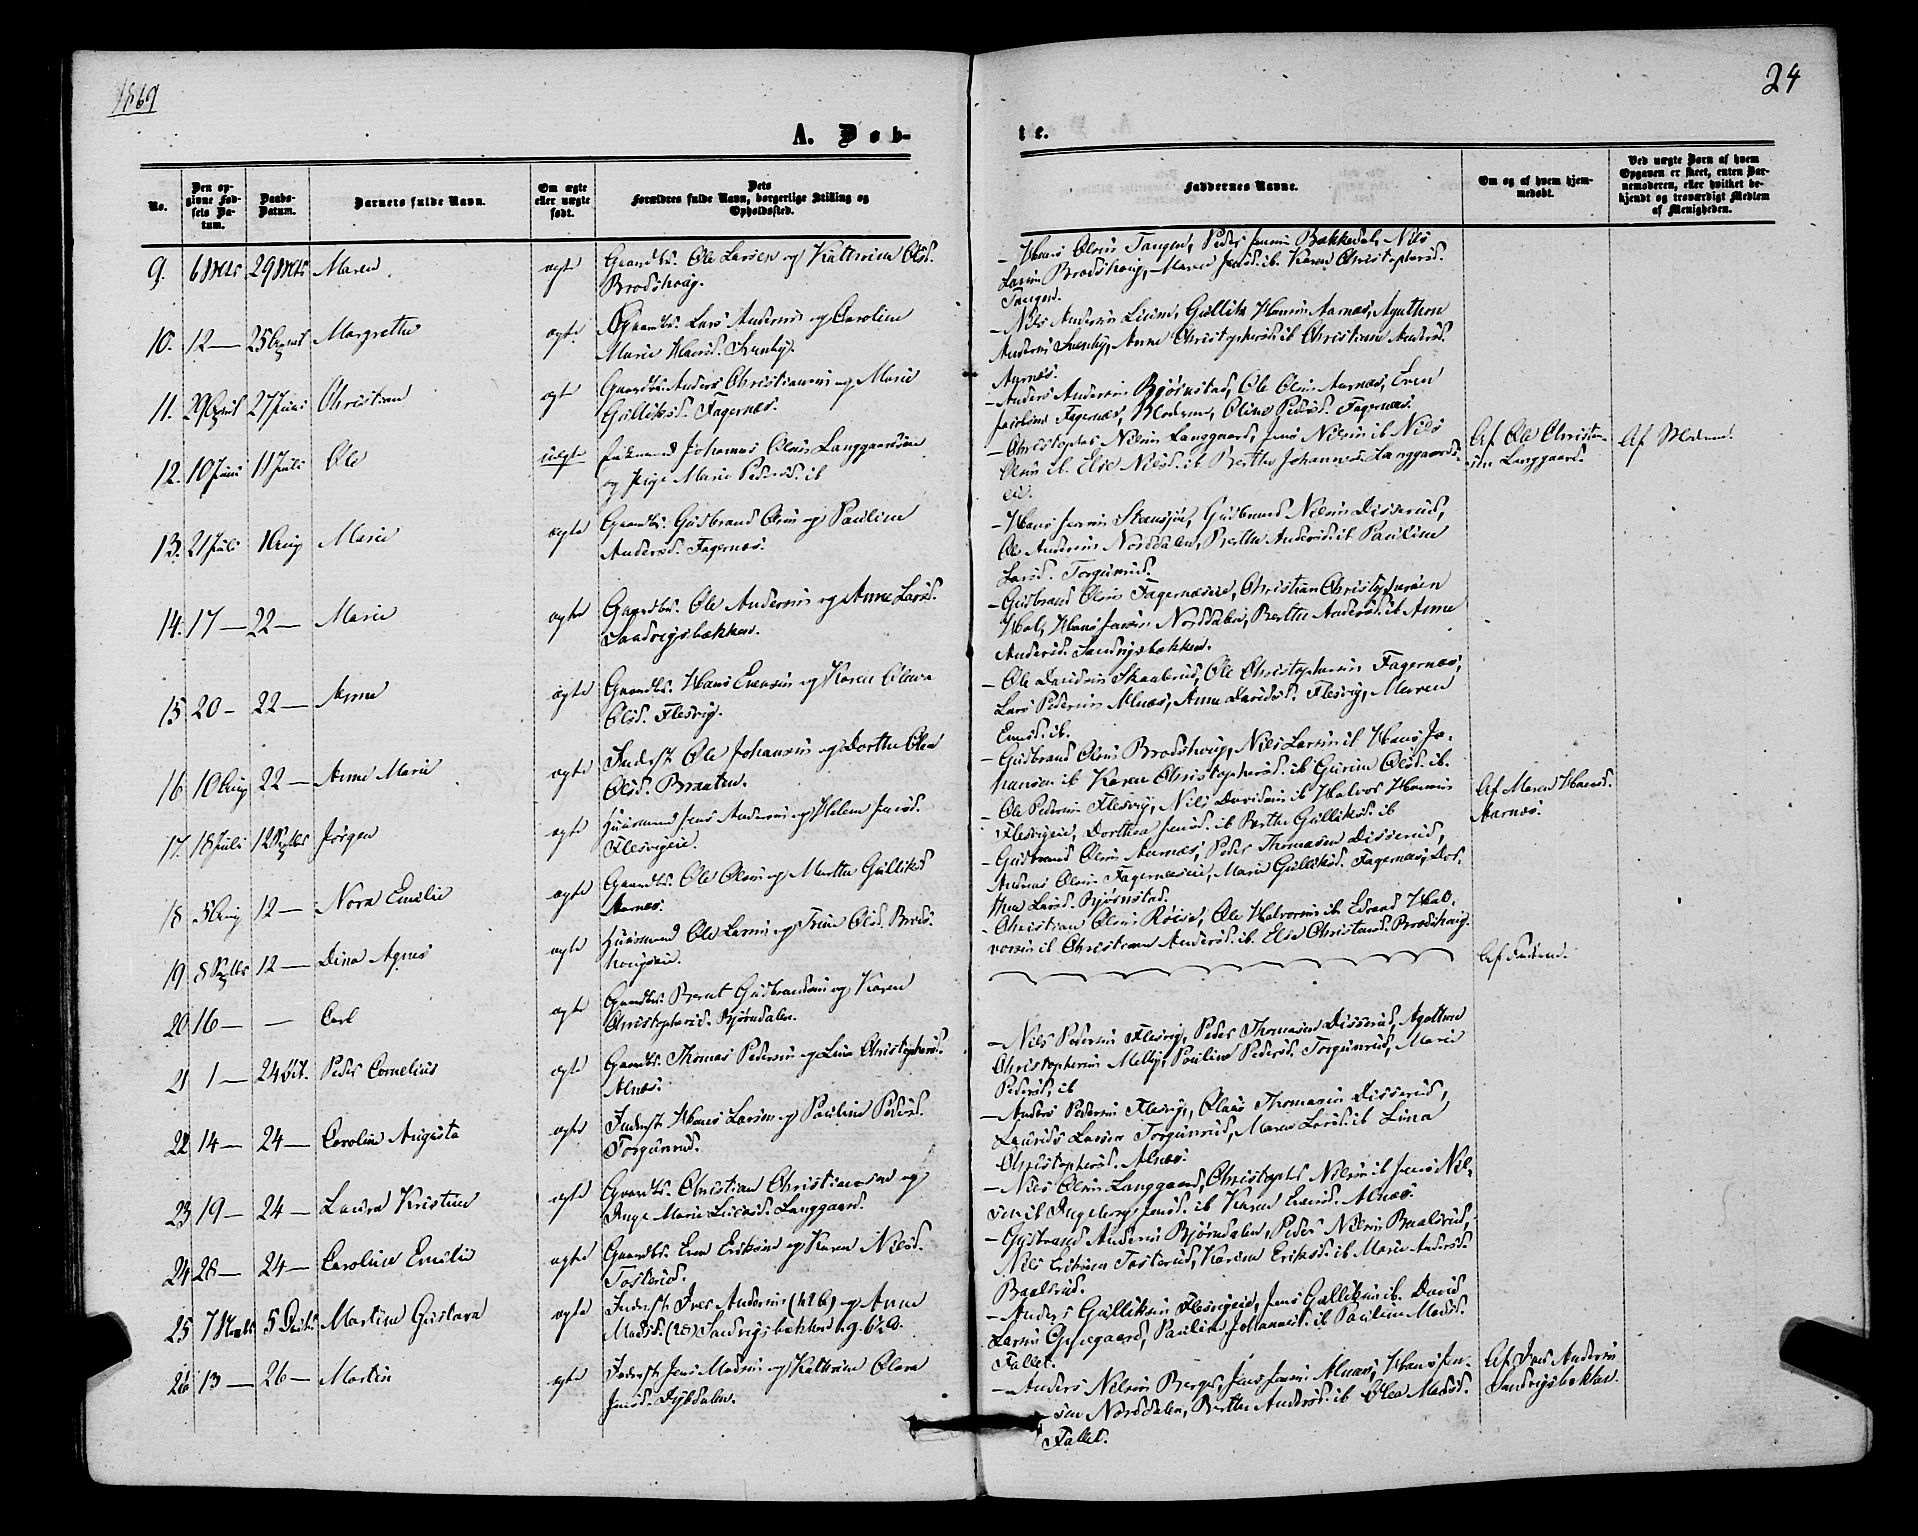 1869
24
A. Døb-
te.
No.
Den op-
givne Fød-
sels Da-
tum.
Daabs-
Datum.
Barnets fulde Navn.
Om ægte
eller uægte
født.
Dets
Forældres fulde Navn, borgerlige Stilling og
Opholdssted.
Faddernes Navne.
Om og af hvem hjem-
medøbt.
Ved uægte Børn af hvem
Opgaven er skeet, enten Bar-
nemoderen, eller hvilket be-
kjendt og troværdigt Medlem
af Menigheden.
9. 6 Marts 29 Marts Maren ægte Gaardbr. Ole Larsen og Kathrine Olsd.
Brodshoug.
- Hans Olsen Tangen, Peder Jensen Bækkedal, Nils
Larsen Brodshoug, Maren Jensd. ib. Karen Christophersd.
Tangen.
10. 12 — 25 April Margrethe ægte Gaardbr. Lars Andersen og Caroline
Marie Hansd.
- Nils Andersen Gullik Hansen Aarnæs, Agathon
Andersen Anne Christophersd. ib Christiane Andersd.
Aarnæs.
11. 29 April 27 Juni Christian ægt Gaardbr. Anders Christiansen og Marie
Gulliksd. Fagernæs.
- Anders Andersen Bjørnstad, Ole Olsen Aarnæs, Even
Jacobsen Fagernæs, Moderen, Oline Pedersd. Fagernæs.
12. 10 Juni 11 Juli Ole uægte Johannes Olsen Langgaardseie
og Pige Marie Pedersd. ib
- Christopher Nilsen Langgaard, Jens Nilsen ib Nils
Olsen ib. Else Nilsd. ib Berthe Johannesd. Langgaards-
eie.
Af Ole Christen-
sen Langgaard.
Af Moderen.
13. 21 Juli 1 Aug Marie ægte Gaardbr. Gudbrand Olsen og Pauline
Andersd. Fagernæs.
- Hans Jensen Gudbrand Nilsen Disserud,
Ole Andersen Norddalen, Berthe Andersd. ib Pauline
Larsd. Torgunrud.
14. 17 — 22 — Marie ægte Gaardbr. Ole Andersen og Anne Larsd.
Sandvigsbakken.
- Gudbrand Olsen Fagernæseie, Christian Christophersen
Hol, Hans Jensen Norddalen, Berthe Andersd. ib Anne
Andersd. Sandvigsbakken.
15 20 — 22 — Anne ægte Gaardbr. Hans Evensen og Karen
Olsd. Flesvig.
- Ole Davidsen Skaalerud, Ole Christophersen Fagernæs,
Lars Pedersen Alnæs, Anne Davidsd. Flesvig, Maren
Evensd. ib.
16 10 Aug 22 — Anne Marie ægte Inderst Ole Johansen og Dorthe Olea
Olsd. Braaten.
- Gudbrand Olsen Brodshoug, Nils Larsen ib Hans Jo-
hansen ib Karen Christophersd. ib Gurine Olsd. ib.
17. 18 Juli 12 Septbr Jørgen ægte Huusmand Jens Andersen og Helene Jensd.
Flesvigeie.
- Ole Pedersen Flesvig, Nils Davidsen ib Halvor Hansen
Flesvigeie, Dorthea Jensd. ib Berthe Gulliksd. ib
Af Maren Hansd.
Aarnæs.
18 5 Aug 12 — Nora Emilie ægte Gaardbr. Ole Olsen og Marthe Gulliksd
Aarnæs.
- Gudbrand Olsen Aarnæs, Peder Thomasen Disserud,
Andreas Olsen Fagernæseie, Marie Gulliksd. Fagernæs, Dor-
thea Larsd. Bjørnstad.
19 8 Septbr 12 — Dina Agnes ægte Huusmand Ole Larsen og Trine Olsd. Brods-
hougeie.
- Christian Olsen Ole Halvorsen ib Edvard Hal-
vorsen ib Christiane Andersd. ib. Else Christensd. Brodshoug.
20 16 — — Carl ægte Gaardbr. Bernt Gudbrandsen og Karen
Christophersd. Bjørndalen.
Af Faderen.
21 1 — 24 Oct. Peder Cornelius ægte Gaardbr. Thomas Pedersen og Lina Christophersd.
Alnæs.
- Nils Pedersen Flesvig, Peder Thomasen Disserud, Agathon
Christophersen Melby, Pauline Pedersd. Torgunrud, Marie
Pedersd. ib
22 14 — 24 — Caroline Augusta ægte Inderst Hans Larsen og Pauline Pedersd.
Torgunrud.
- Anders Pedersen Flesvig, Thomasen Disserud,
Laurids Larsen Torgunrud, Maren Larsd. ib Lina
Christophersd. Alnæs.
23 19 — 24 — Laura Kristine ægte Gaardbr. Christian Christiansen og
Inge Marie Langgaard.
- Nils Olsen Langgaard, Christopher Nilsen ib Jens Nil-
sen ib Ingeborg Jensd. ib Karen Evensd. Alnæs.
24 28 — 24 — Caroline Emilie ægte Gaardbr. Even Eriksen og Karen Nilsd.
Tosterud.
- Gudbrand Andersen Bjørndalen, Peder Nilsen Baalsrud,
Nils Eriksen Tosterud, Karine Eriksd. ib Marie Andersd.
Baalsrud.
25 7 Novbr 5 Decbr Martine Gustava ægte Inderst Iver Andersen (42 6) og Anne
Madsd. (28) Sandvigsbakken
- Anders Gulliksen Flesvigeie, Jens Gulliksen ib. David
Larsen Pauline Johannesd. ib Pauline Madsd.
Fallet.
26 13 — 26 — Martin ægte Inderst Jens Madsen og Kathrine Olava
Jensd. Dybdalen.
- Anders Nilsen Berger, Jens Jensen Alnæs, Hans Jen-
sen Norddalen, Berthe Andersd. ib Olea Madsd.
Fallet.
Af Iver Andersen
Sandvigsbakken.